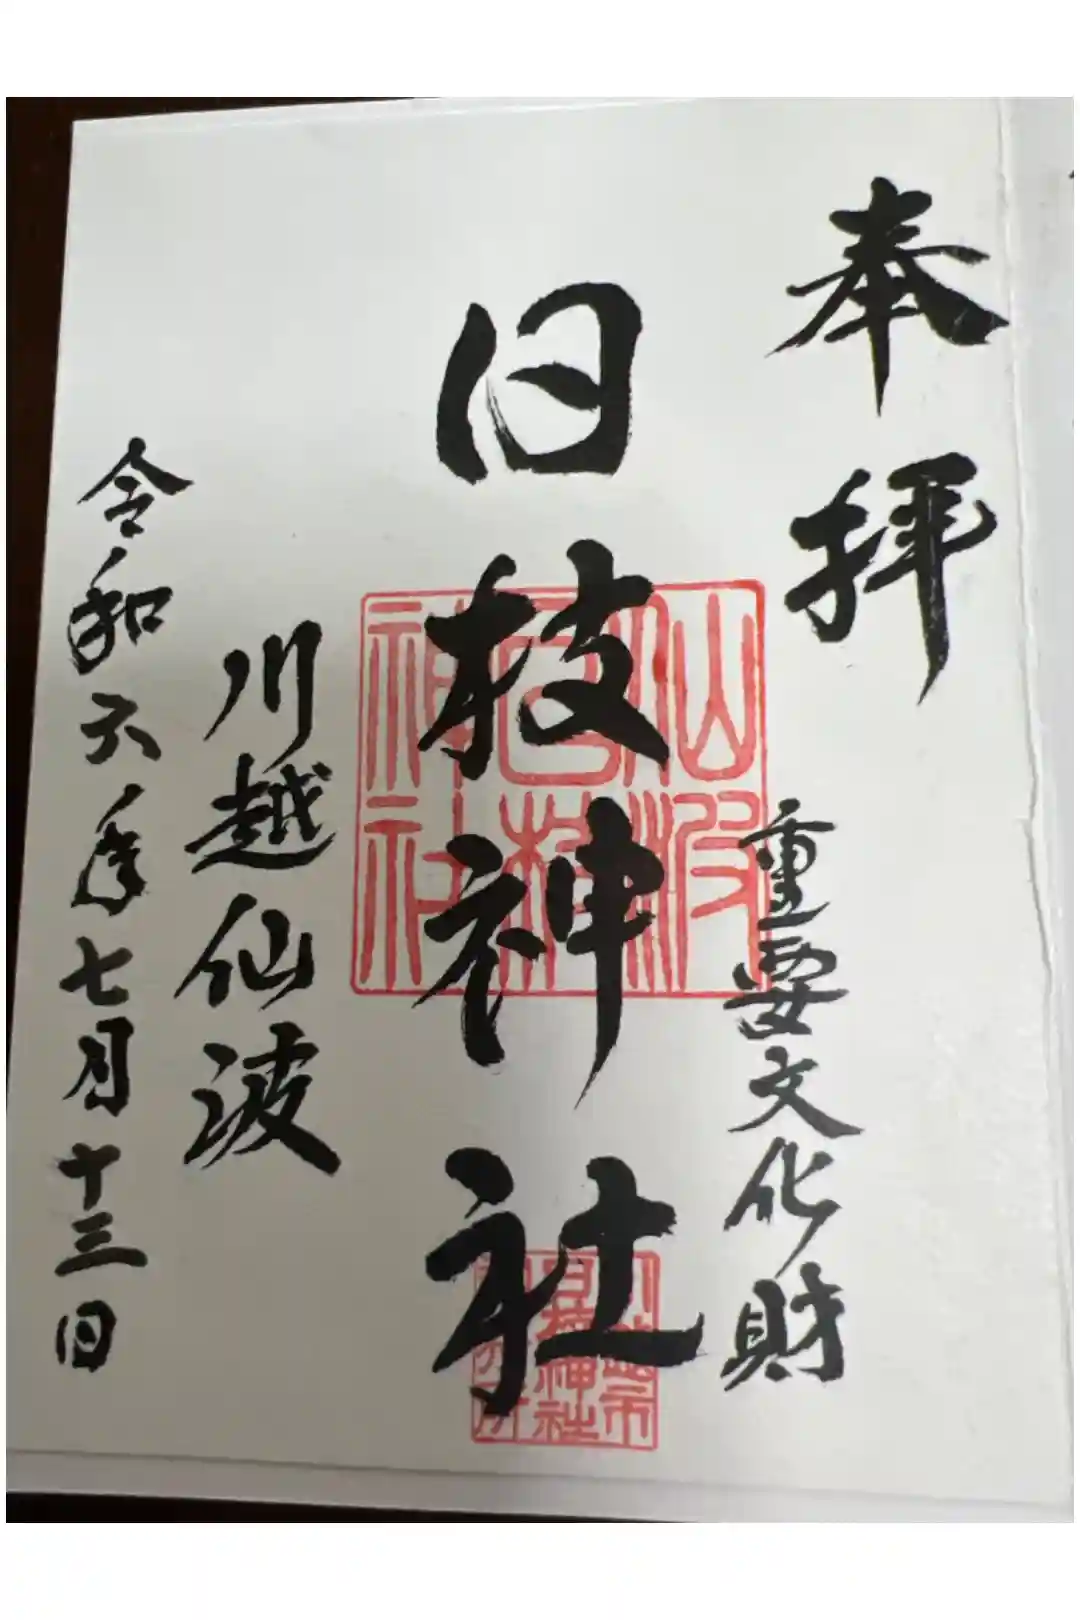 奉拝
重要文化財
日枝神社
仙波
日枝
神社
川越市
日枝神社
川越仙波
令和六年七月十三日